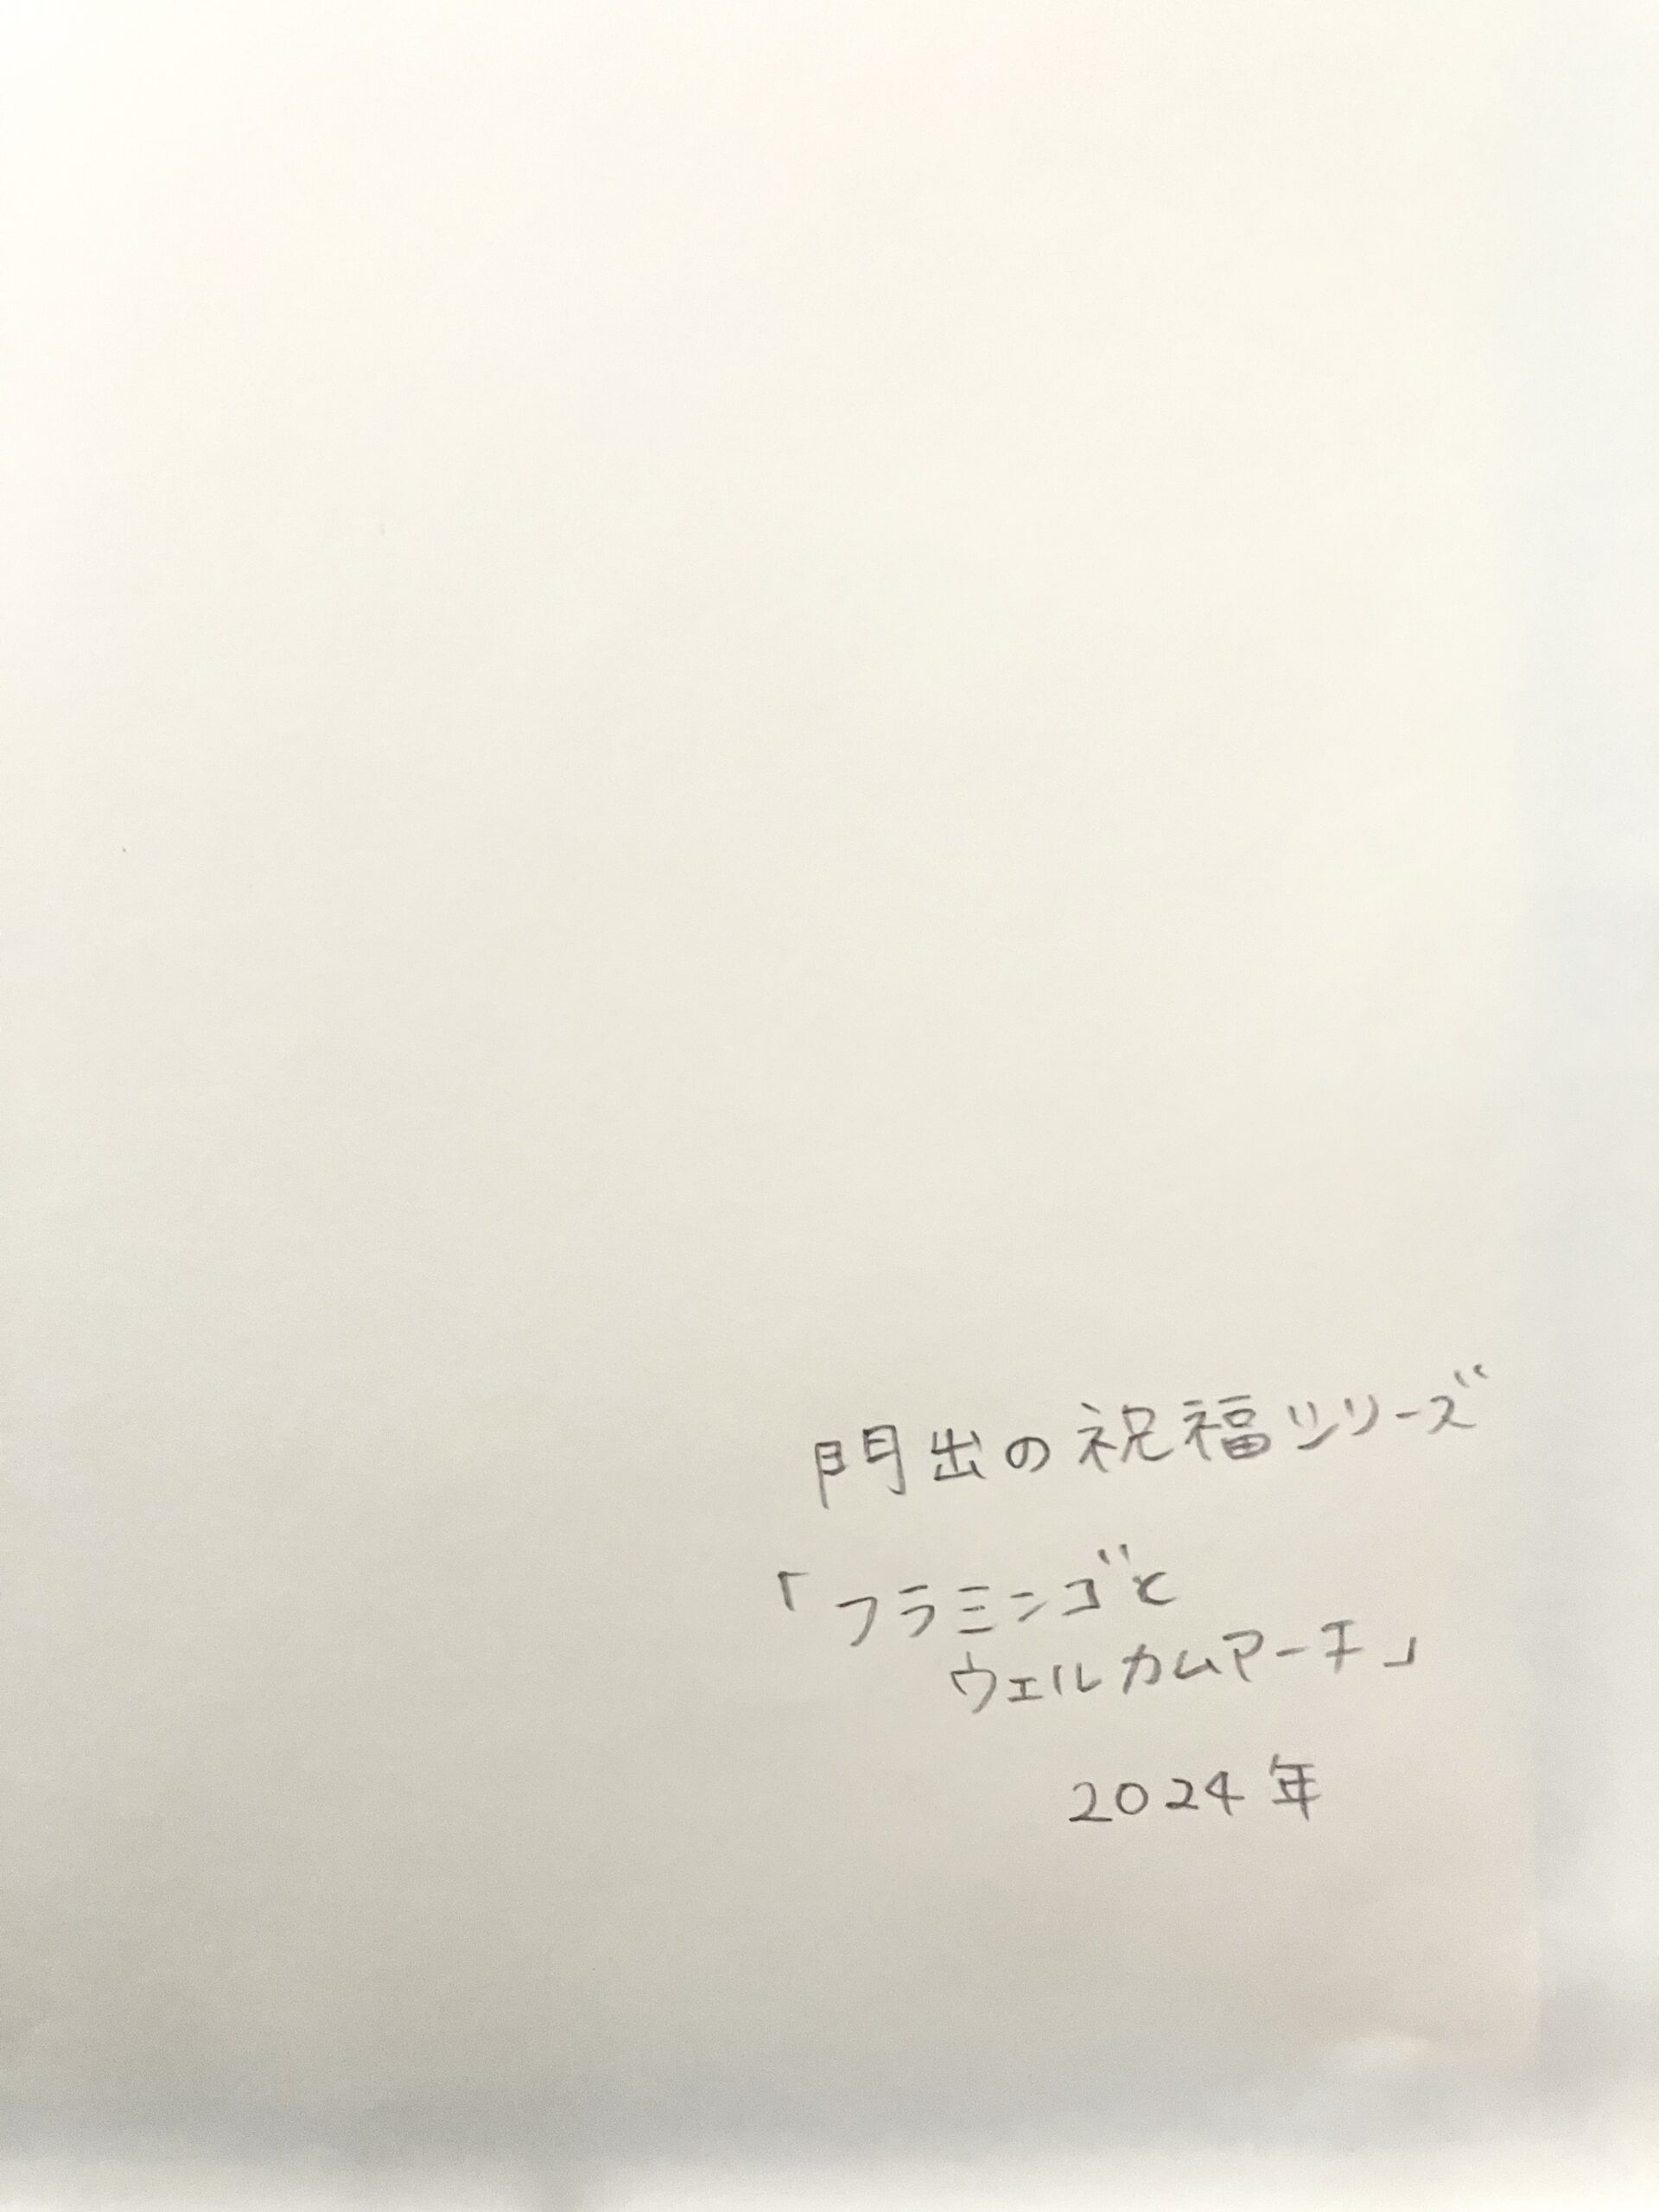 門出の祝福シリーズ
「フラミンゴと
ウェルカムアーチ」
2024年